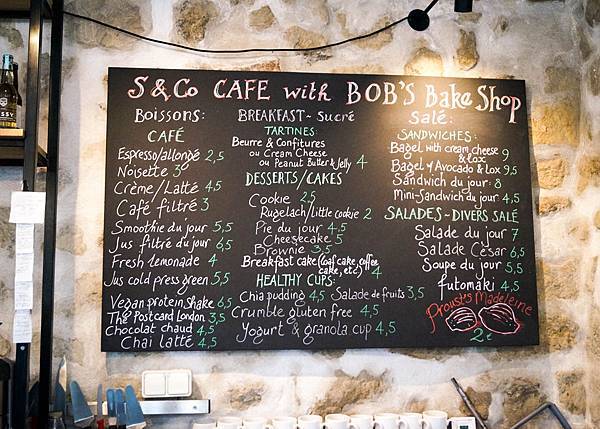 S & Co CAFE with BOB'S Bake Shop
Boissons:
CAFÉ
Espresso/allongé 2,5
Noisette 3
Crème/Latté 4,5
Café filtré 3
Smoothie du jour 5,5
Jus filtré du jour 6,5
Fresh lemonade 4
Jus cold press green 5,5
Vegan protein shake 6,5
The Postcard London 3,5
Chocolat chaud 4,5
Chai latté 4,5
BREAKFAST - sucré
TARTINES:
Beurre & Confitures
ou Cream Cheese
ou Peanut Butter & Jelly 4
DESSERTS/CAKES
Cookie 2,5
Rugelach/little cookie 2
Pie du jour 4,5
Cheesecake 5
Brownie 3,5
Breakfast cake (loaf cake, coffee
cake, etc) 4
HEALTHY CUPS:
Chia pudding 4,5 Salade de fruits 3,5
Crumble gluten free 4,5
Yogurt & granola cup 4,5
Salé:
SANDWICHES:
Bagel with cream cheese
& lox 9
Bagel & Avocado & Lox 9,5
Sandwich du jour 8
Mini-Sandwich du jour 4,5
SALADES - DIVERS SALÉ
Salade du jour 7
Salade César 6,5
Soupe du jour 5,5
futomaki 4,5
Proust's Madeleine
2€